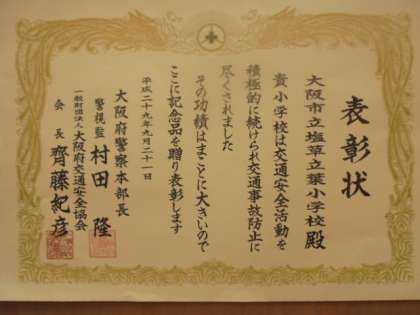 表彰状
大阪市立塩草立葉小学校殿
貴小学校は交通安全活動を
積極的に続けられ交通事故防止に
尽くされました
その功績はまことに大きいので
ここに記念品を贈り表彰します
平成二十九年九月二十一日
大阪府警察本部長
警視監 村田 隆
一般財団法人大阪府交通安全協会
会長 齊藤紀彦